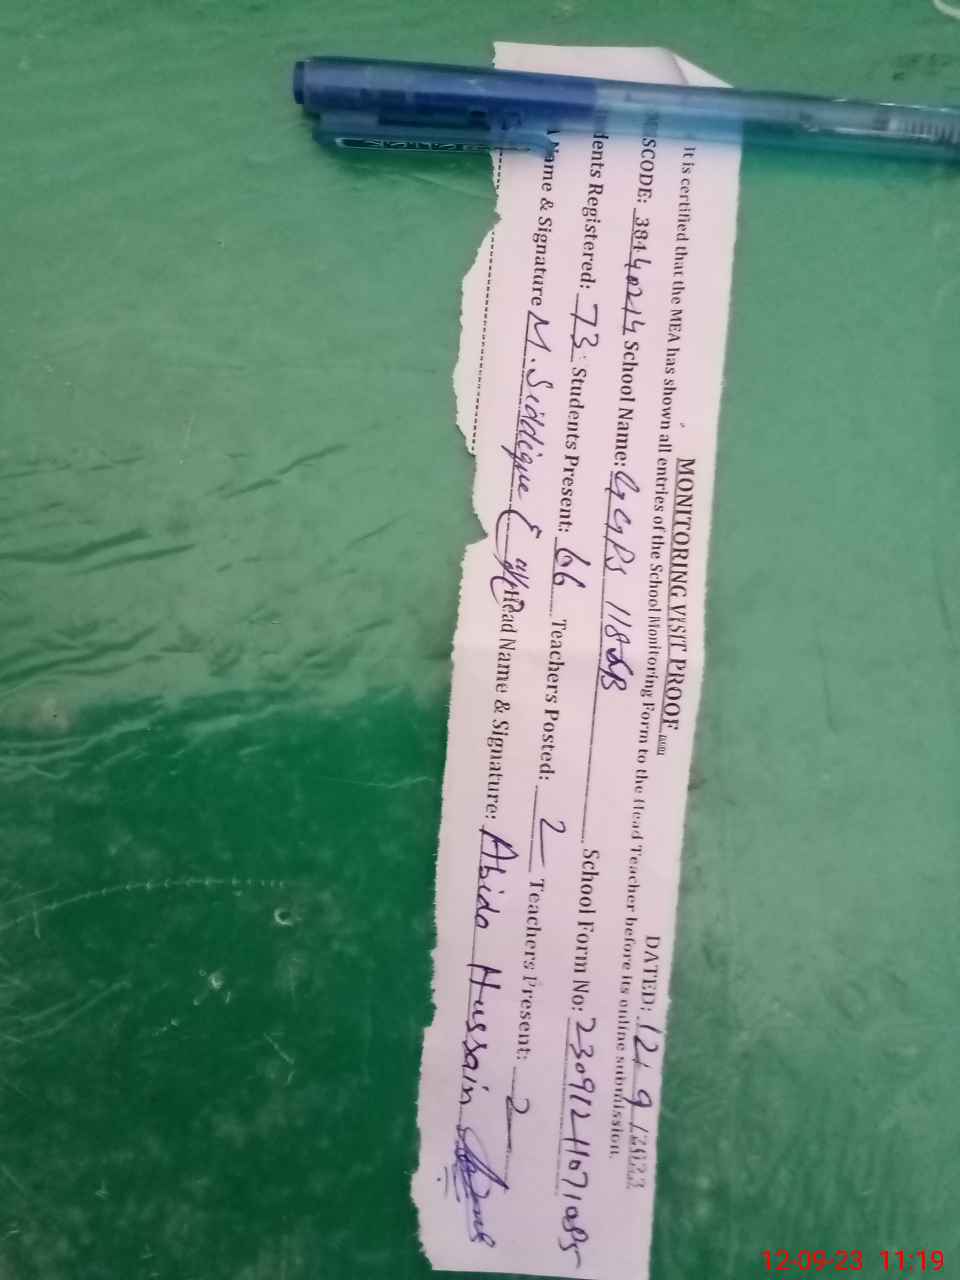 MONITORING VISIT PROOF
DATED: 12/ 9 /2023
It is certified that the MEA has shown all entries of the School Monitoring Form to the Head Teacher before its online submission.
SCODE: 38440214 School Name: GGPS 118 SB School Form No:
dents Registered: 73 Students Present: 66 Teachers Posted: 2 Teachers Present: 2
Name & Signature M. Siddique Head Name & Signature: Abida Hussain
12-09-23 11:19